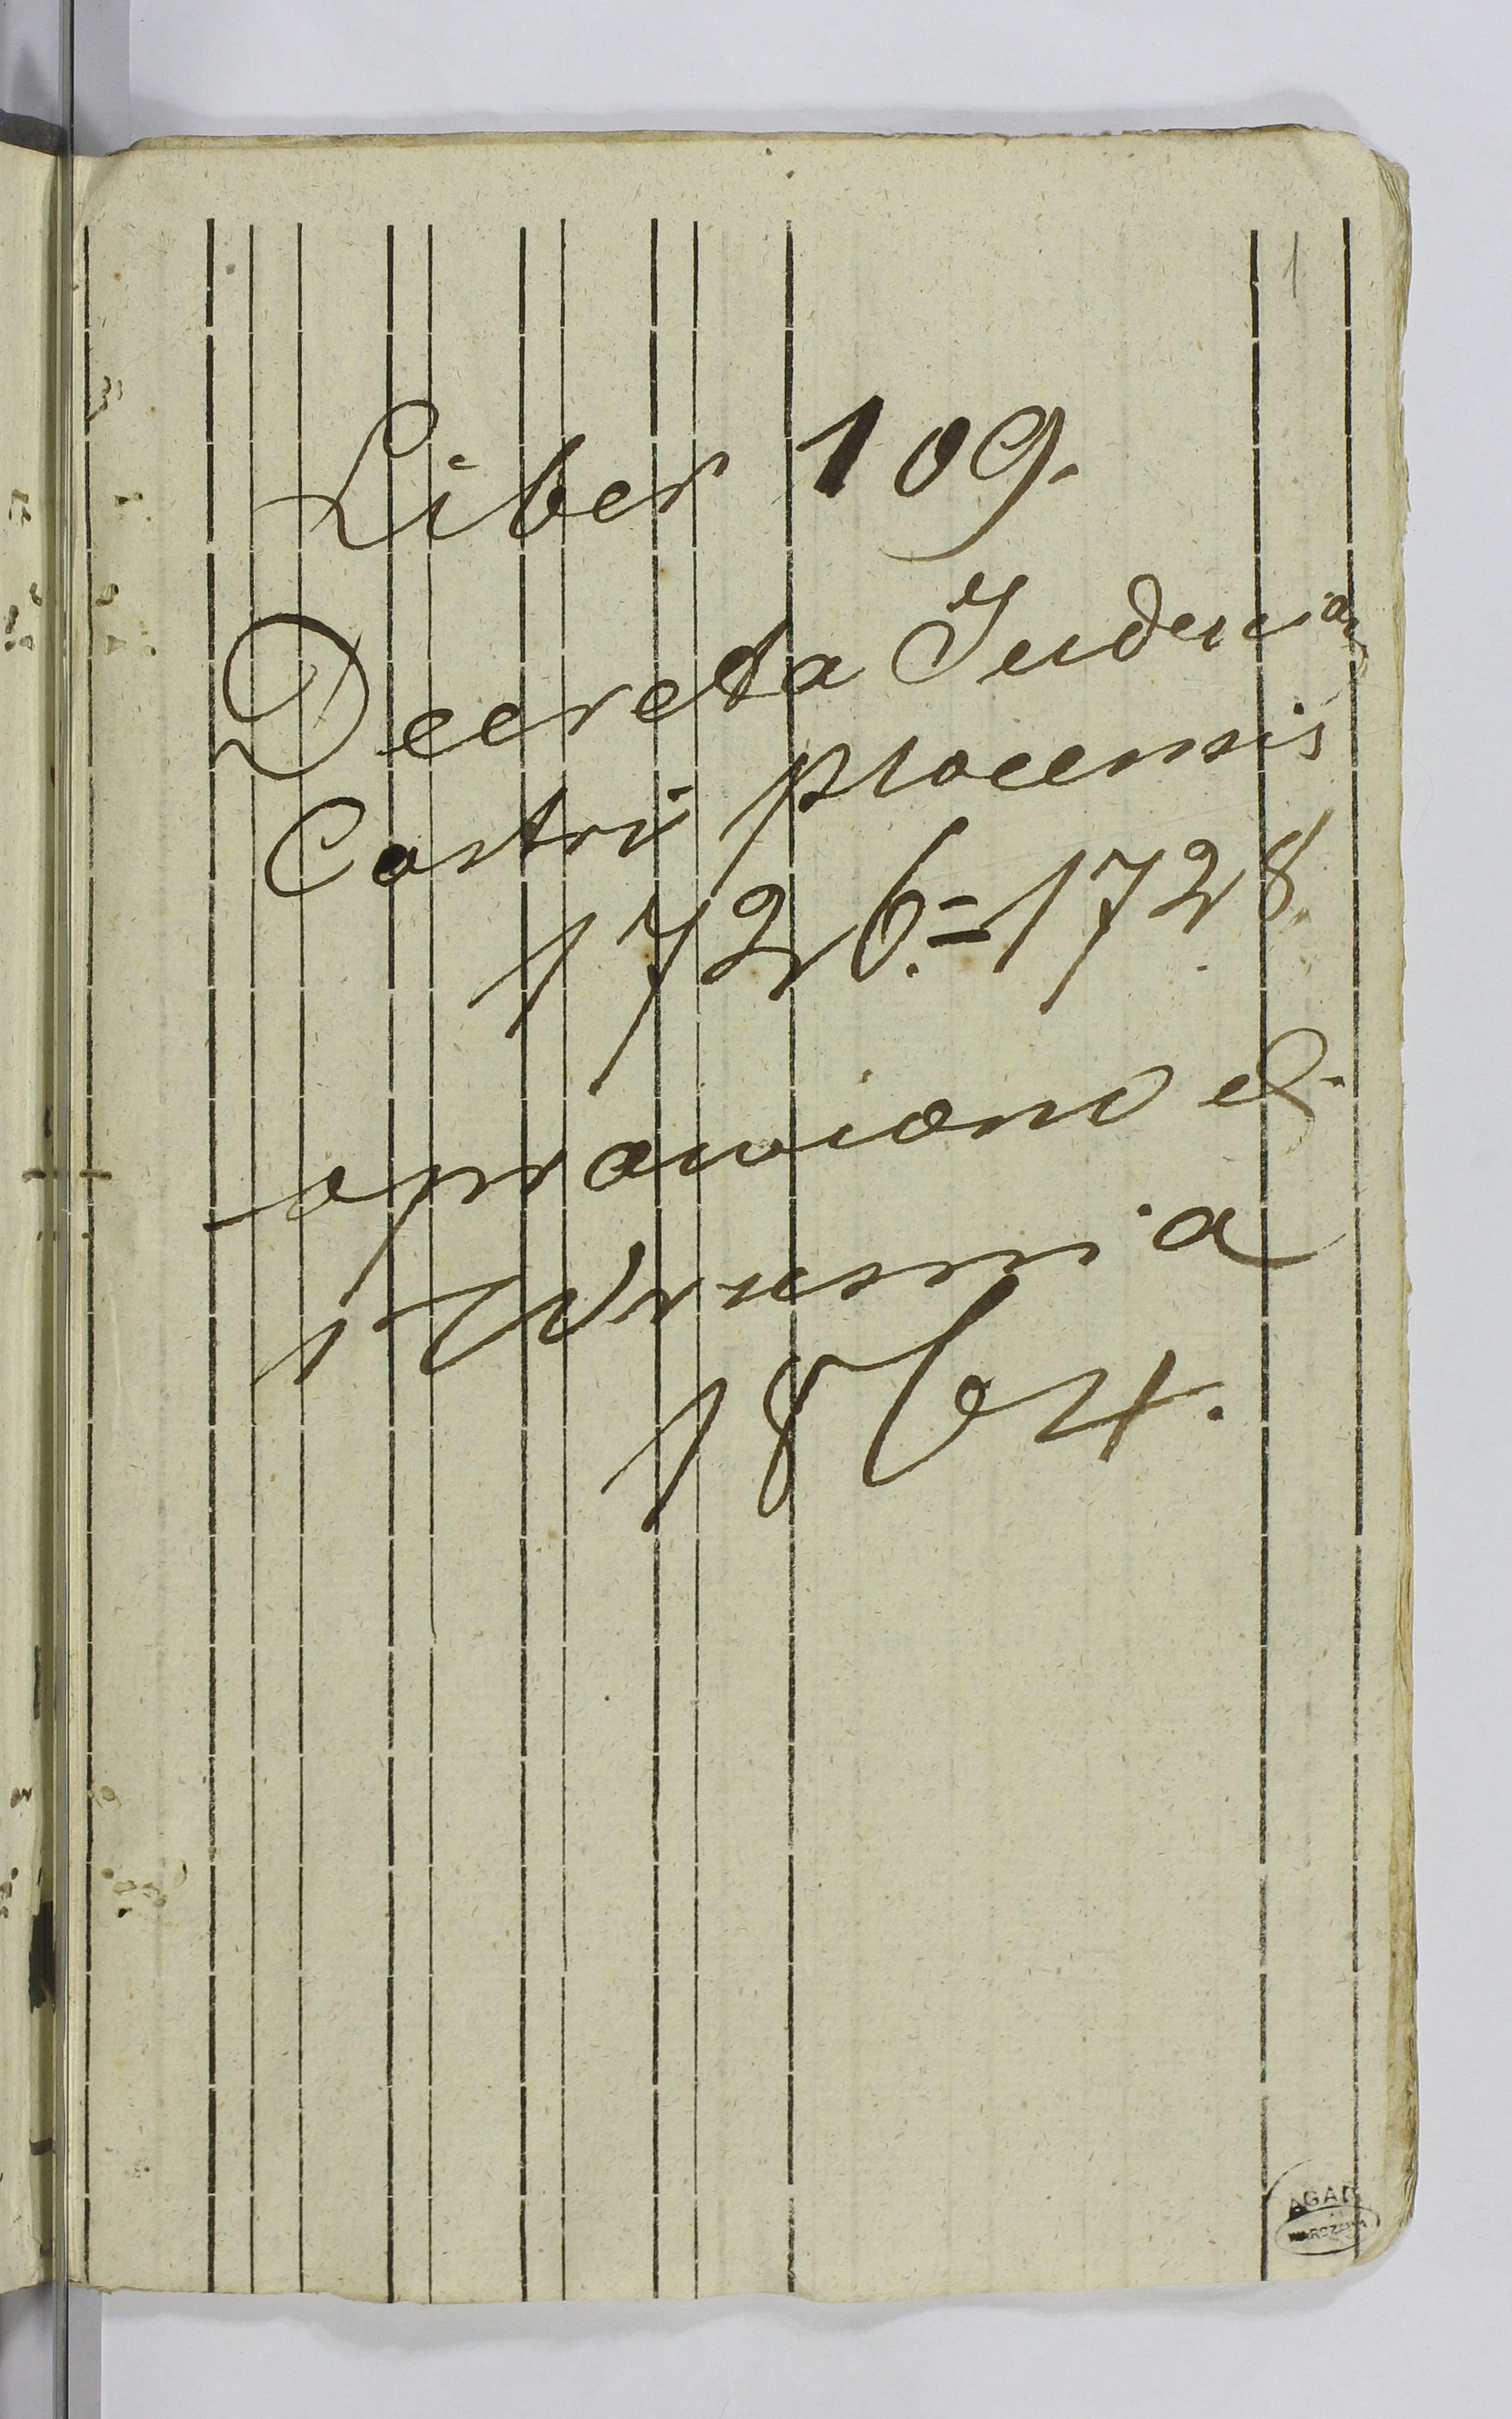 1
Liber 109.
Decreta
Castri plocensis
1726.=1728.
oprawiono d.
1 Września
1864.
AGAD
WARSZAWA